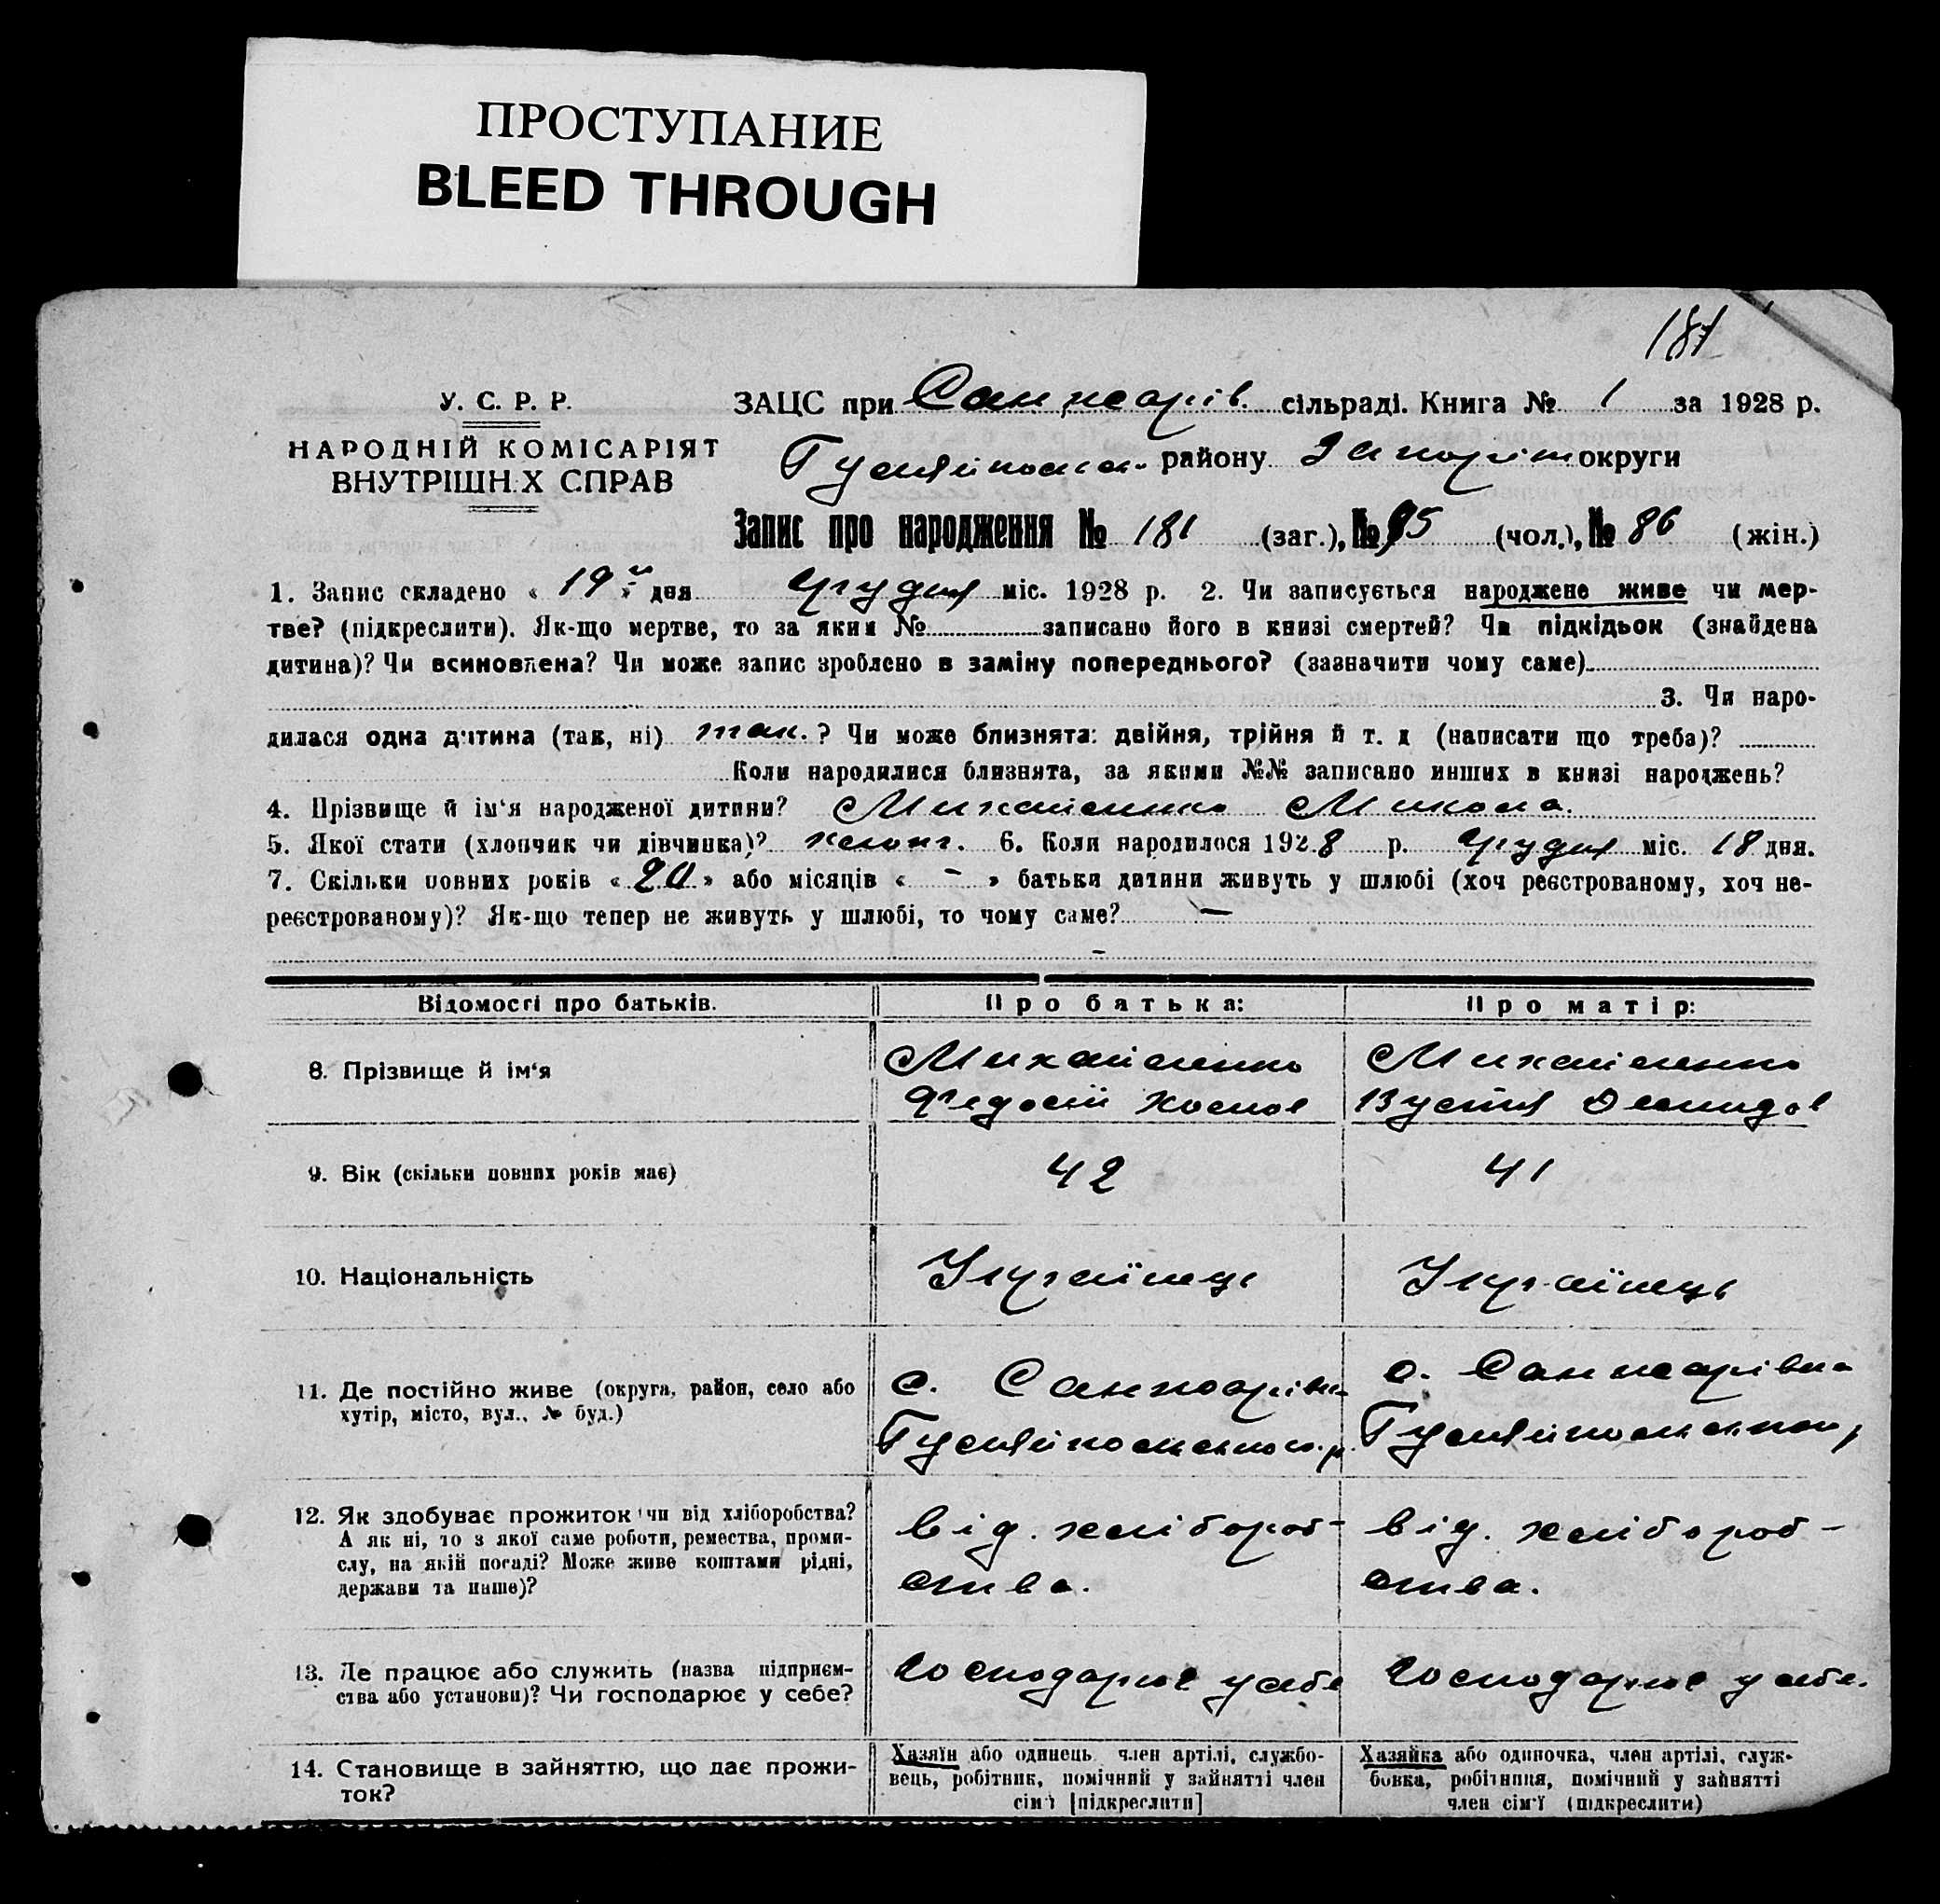 ПРОСТУПАНИЕ
BLEED THROUGH
181
У. С. Р. Р.
НАРОДНІЙ КОМІСАРІЯТ
ВНУТРІШН.Х СПРАВ
ЗАЦС при Санжарів. сільраді. Книга № 1 за 1928 р.
Гуляйпольськ. району Запоріж округи
Запис про народження № 181 (заг.), № 95 (чол.), № 86 (жін.)
1. Запис складено « 19 » дня грудня міс. 1928 р. 2. Чи записується народжене живе чи мер-
тве? (підкреслити). Як-що мертве, то за яким № записано його в книзі смертей? Чи підкідьок (знайдена
дитина)? Чи всиновлена? Чи може запис зроблено в заміну попереднього? (зазначити чому саме)
3. Чи наро-
дилася одна дитина (так, ні) так. ? Чи може близнята: двійня, трійня й т. д (написати що треба)?
Коли народилися близнята, за якими №№ записано инших в книзі народжень?
4. Прізвище й ім'я народженої дитини? Михайленко Микола.
5. Якої стати (хлопчик чи дівчинка)? хлопч. 6. Коли народилося 1928 р. грудня міс. 18 дня.
7. Скільки повних років « 20 » або місяців « - » батьки дитини живуть у шлюбі (хоч реєстрованому, хоч не-
реєстрованому)? Як-що тепер не живуть у шлюбі, то чому саме? —
-
Відомості про батьків.
Про батька:
Про матір:
8. Прізвище й ім'я
Михайленко
Федосій
Михайленко
9. Вік (скільки повних років має)
42
41
10. Національність
Українець
Українець
11. Де постійно живе (округа, район, село або
хутір, місто, вул., № буд.)
с. Санжарівка
Гуляйпольського р.
с. Санжарівка
Гуляйпольського р
12. Як здобуває прожиток чи від хліборобства?
А як ні, то з якої саме роботи, ремества, проми-
слу, на якій посаді? Може живе коштами рідні,
держави та инше)?
від. хлібороб-
ства.
від. хлібороб-
ства.
13. Де працює або служить (назва підприєм-
ства або установи)? Чи господарює у себе?
господарює у себе
господарює у себе.
14. Становище в зайняттю, що дає прожи-
ток?
Хазяїн або одинець член артілі, службо-
вець, робітник, помічний у зайнятті член
сім'ї [підкреслити]
Хазяйка або одиночка, член артілі, служ-
бовка, робітниця, помічний у зайнятті
член сім'ї (підкреслити)